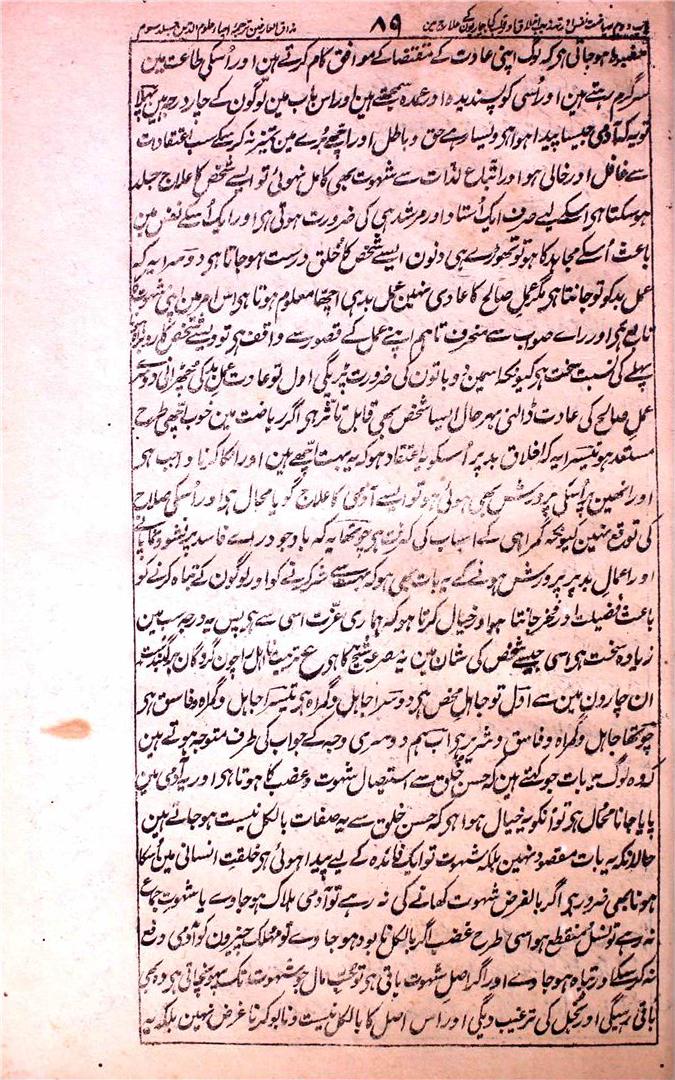 باب دوم ریاضت نفس اور تہذیب اخلاق اور دل کی بیماریوں کے علاج مین ۸۹ مذاق العارفین ترجمہ احیاء علوم الدین جلد سوم
مقید ہو جاتی ہی کہ لوگ اپنی عادت کے مقتضا کے موافق کام کرتے ہین اور اُسکی طاعت مین
سرگرم رہتے ہین اور اُسی کو پسندیدہ اور عمدہ سمجھتے ہین اور اس باب مین لوگون کے چار درجہ ہین پہلا
تو یہ کہ آدمی جیسا پیدا ہوا ہی ویسا رہے حق و باطل اور اچھے بُرے مین تمیز نہ کر سکے سب اعتقادات
سے غافل اور خالی ہو اور اتباع لذات سے شہوت بھی کامل نہوئی تو ایسے شخص کا علاج جلد
ہو سکتا ہی اسکے لیے صرف ایک اُستاد اور مرشد ہی کی ضرورت ہوتی ہی اور ایک اُسکے نفس مین
باعث اُسکے مجاہدہ کا ہو تو تھوڑے ہی دنون ایسے شخص کا خُلق درست ہو جاتا ہی دوسرا یہ کہ
عمل بد کو تو جانتا ہی مگر عمل صالح کا عادی نہین عمل بد ہی اچھا معلوم ہوتا ہی اس امر مین اپنی شہوت کا
تابع ہی اور راے صواب سے منحرف تاہم اپنے عمل کے قصور سے واقف ہی تو ویسے شخص کا روبراہ ہونا
پہلے کی نسبت سخت ہی کیونکہ اسمین دو باتون کی ضرورت پڑیگی اول تو عادت عمل بد کی چھڑانی دوسرے
عمل صالح کی عادت ڈالنی بہر حال ایسا شخص بھی قابل تاثر ہی اگر ریاضت مین خوب اچھی طرح
مستعد ہو تیسرا یہ کہ اخلاق بد پر اُسکو یہ اعتقاد ہو کہ یہ بہت اچھے ہین اور انکا کرنا واجب ہی
اور انھین پر اُسکی پرورش بھی ہوئی ہو تو ایسے آدمی کا علاج گویا محال ہی اور اُسکی صلاح
کی توقع نہین کیونکہ گمراہی کے اسباب کی کثرت ہی چوتھا یہ کہ باوجود راے فاسد پر نشو و نما پانے
اور اعمال بد پر پرورش ہونے کے یہ بات بھی ہو کہ بہت سے شر کرنے کو اور لوگون کے تباہ کرنے کو
باعث فضیلت اور فخر جانتا ہو اور خیال کرتا ہو کہ ہماری عزت اسی سے ہی پس یہ درجہ سب مین
زیادہ سخت ہی اسی جیسے شخص کی شان مین یہ مصرعہ شیخ کا ہی ع تربیت نااہل را چون گردگان بر گنبدست
ان چارون مین سے اول تو جاہل محض ہی دوسرا جاہل و گمراہ ہی تیسرا جاہل و گمراہ و فاسق ہی
چوتھا جاہل و گمراہ و فاسق و شریر ہی اب ہم دوسری وجہ کے جواب کی طرف متوجہ ہوتے ہین
کہ وہ لوگ یہ بات جو کہتے ہین کہ حسن خلق سے استیصال شہوت و غضب کا ہوتا ہی اور یہ آدمی مین
پایا جانا محال ہی تو انکو یہ خیال ہوا ہی کہ حسن خلق سے یہ صفات بالکل نیست ہو جاتے ہین
حالانکہ یہ بات مقصود نہین بلکہ شہوت تو ایک فائدہ کے لیے پیدا ہوئی ہی خلقت انسانی مین اُسکا
ہونا بھی ضرور ہی اگر بالفرض شہوت کھانے کی نہ رہے تو آدمی ہلاک ہو جاوے یا شہوت جماع
نہ رہے تو نسل منقطع ہو اسی طرح غضب اگر بالکل نابود ہو جاوے تو مہلک چیزون کو آدمی دفع
نہ کر سکے اور تباہ ہو جاوے اور اگر اصل شہوت باقی ہو تو محبت مال جو شہوت تک پہونچاتی ہی وہ بھی
باقی رہیگی اور بخل کی ترغیب دیگی اور اس اصل کا بالکل نیست و نابود کرنا غرض نہین بلکہ یہ